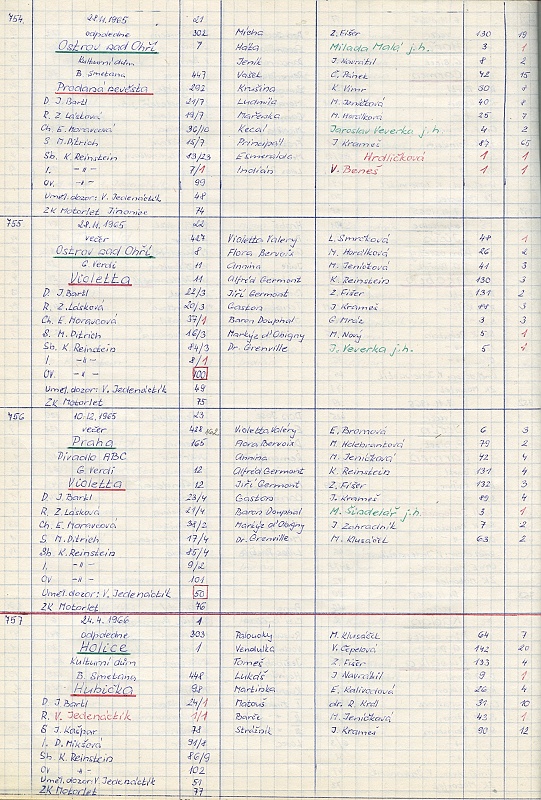 754 28.11.1965 21
odpoledne 302 Micha Z. Fišer 130 19
Ostrov nad Ohří 7 Háta Milada Malá j.h. 3 1
Kulturní dům Jeník J. Navrátil 8 2
B. Smetana 447 Vašek C. Pánek 42 15
Prodaná nevěsta 292 Krušina K. Vimr 30 8
D. J. Bartl 21/7 Ludmila M. Jeníčková 40 8
R. Z. Lásková 19/7 Mařenka M. Horálková 25 7
Ch. E. Moravcová 36/10 Kecal Jaroslav Veverka j.h. 4 2
S M. Ditrich 15/7 Principál J. Krameš 87 65
Sb. K. Reinstein 83/23 Esmeralda Hrdličková 1 1
I. -"- 7/1 Indián V. Beneš 1 1
Ov. 99
Uměl. dozor: V. Jedenáctík 48
ZK Motorlet Jinonice 74
755 28.11.1965 22
večer 427 Violetta Valery L. Smrčková 48 1
Ostrov nad Ohří 8 Flora Bervoix M. Horálková 26 2
G. Verdi 11 Annina M. Jeníčková 41 3
Violetta 11 Alfréd Germont K. Reinstein 130 3
D. J. Bartl 22/3 Jiří Germont Z. Fišer 131 2
R. Z. Lásková 20/3 Gaston J. Krameš 88 3
Ch. E. Moravcová 37/1 Baron Douphal G. Mráz 3 3
S. M. Ditrich 16/3 Markýz d'Obigny M. Nový 5 1
Sb. K. Reinstein 84/3 Dr. Grenville J. Veverka j.h. 5 1
I. -"- 8/1
Ov. -"- 100
Uměl. dozor: V. Jedenáctík 49
ZK Motorlet 75
756 10.12.1965 23
večer 428 Violetta Valery E. Bromová 6 3
Praha 165 Flora Bervoix M. Holebrantová 79 2
Divadlo ABC Annina M. Jeníčková 42 4
G. Verdi 12 Alfréd Germont K. Reinstein 131 4
Violetta 12 Jiří Germont Z. Fišer 132 3
D. J. Bartl 23/4 Gaston J. Krameš 89 4
R. Z. Lásková 21/4 Baron Douphal M. Šindelář j.h. 3 1
Ch. E. Moravcová 38/2 Markýz d'Obigny J. Zahradník 7 2
S M. Ditrich 17/4 Dr. Grenville M. Klusáček 63 2
Sb K. Reinstein 85/4
I. -"- 9/2
Ov -"- 101
Uměl. dozor: V. Jedenáctík 50
ZK Motorlet 76
757 24.4.1966 1
odpoledne 303 Palouský M. Klusáček 64 7
Holice 1 Vendulka V. Čepelová 142 20
Kulturní dům Tomeš Z. Fišer 133 4
B. Smetana 448 Lukáš J Navrátil 9 1
Hubička 98 Martinka E. Kalivodová 26 4
D J. Bartl 24/1 Matouš dr. R. Krdl 31 10
R. V. Jedenáctík 1/1 Barče M. Jeníčková 43 1
S J. Kašpar 78 Strážník J. Krameš 90 12
I. D. Mikšová 91/8
Sb. K. Reinstein 86/9
Ov -"- 102
Uměl. dozor: V. Jedenáctík 51
ZK Motorlet 77